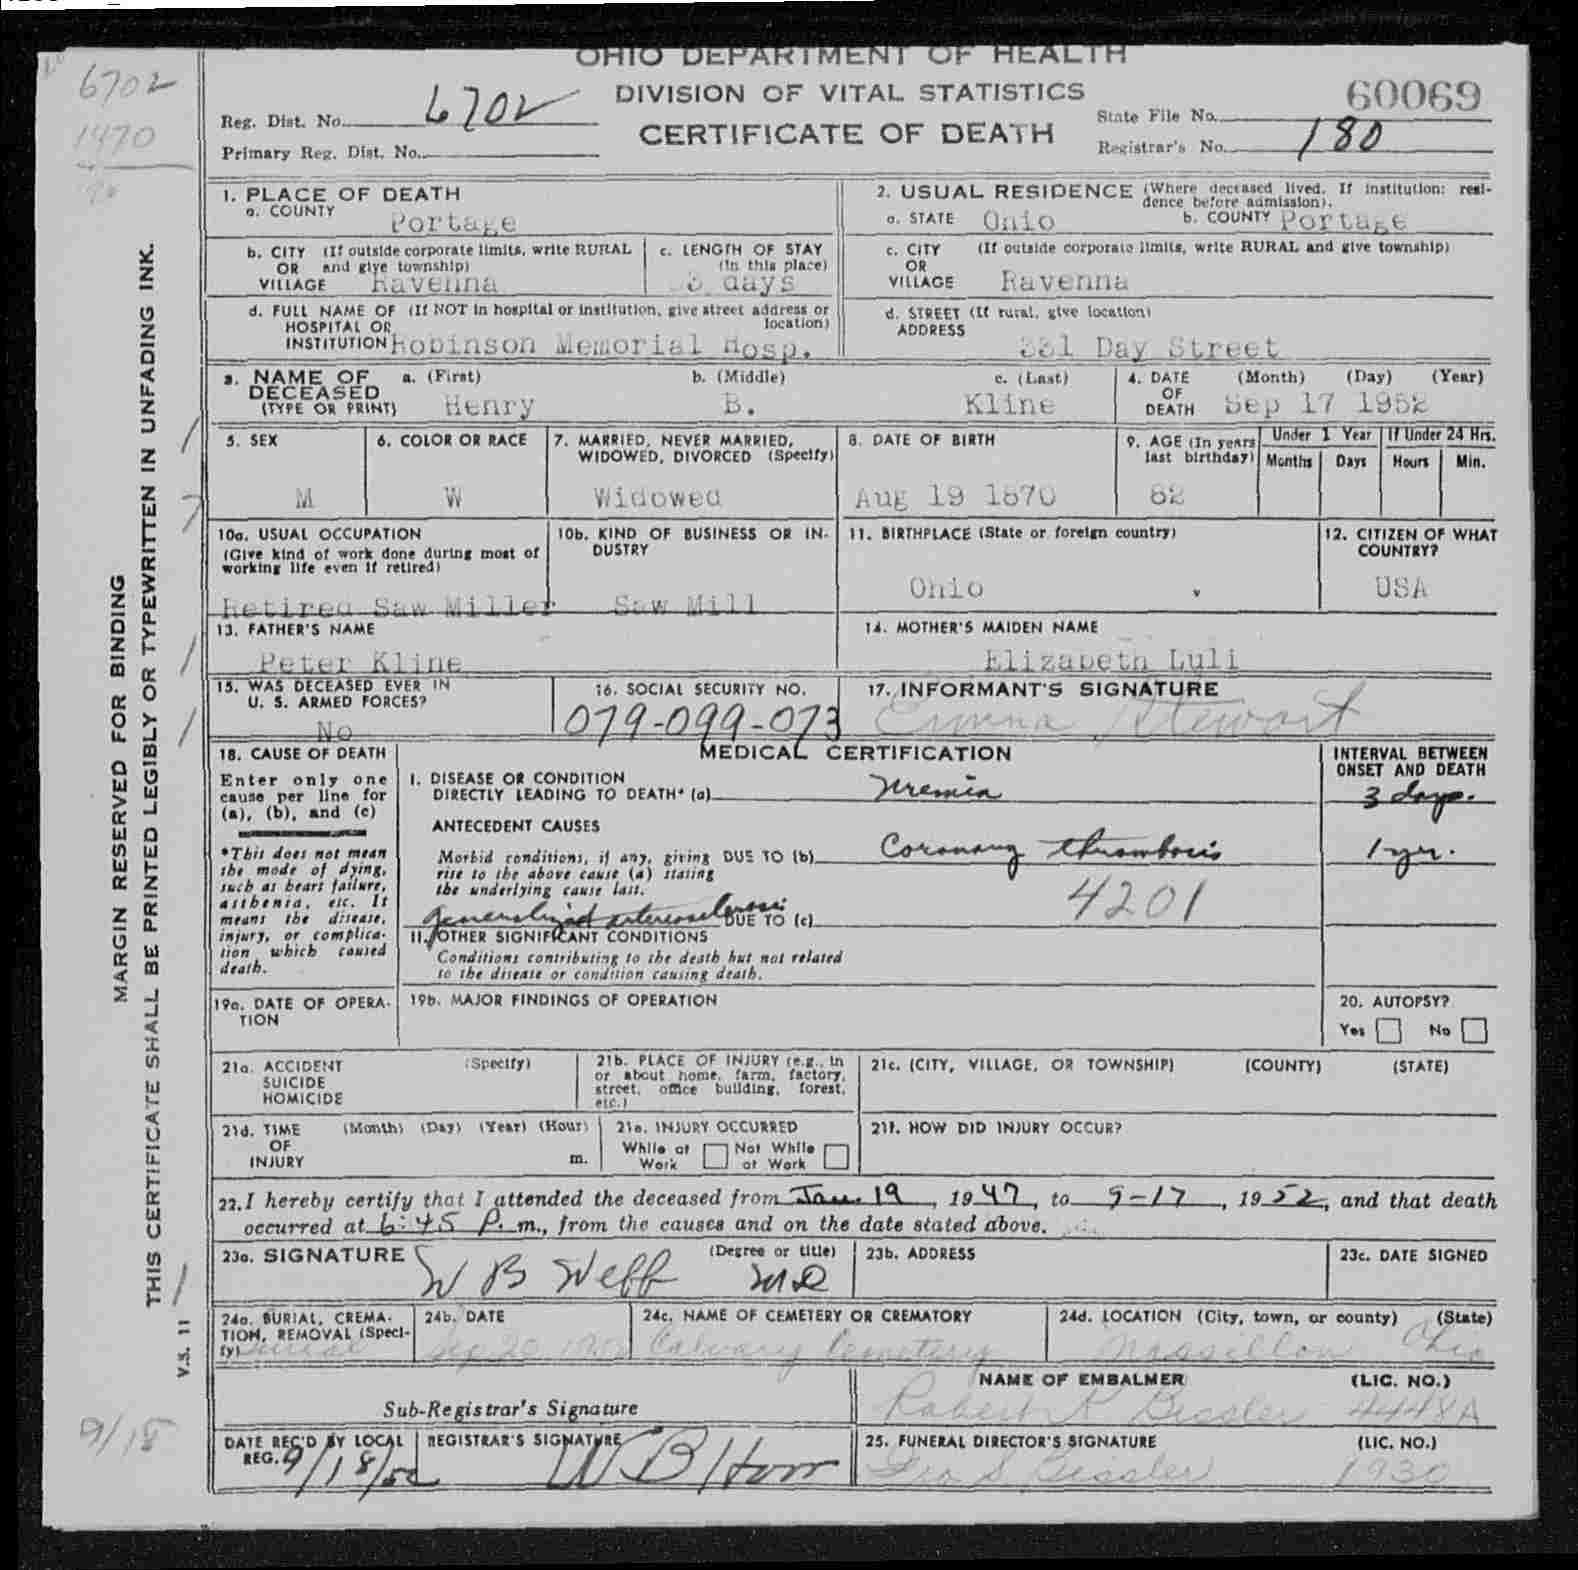 6702
1470
OHIO DEPARTMENT OF HEALTH
DIVISION OF VITAL STATISTICS
CERTIFICATE OF DEATH
Reg. Dist. No. 6702
Primary Reg. Dist. No.
60069
State File No.
Registrar's No. 180
1. PLACE OF DEATH
a. COUNTY
Portage
2. USUAL RESIDENCE (Where deceased lived. If institution: resi-
dence before admission).
a. STATE Ohio b. COUNTY Portage
b. CITY (If outside corporate limits, write RURAL
OR and give township)
VILLAGE Ravenna
c. LENGTH OF STAY
(in this place)
3 days
c. CITY (If outside corporate limits, write RURAL and give township)
OR
VILLAGE Ravenna
d. FULL NAME OF (If NOT in hospital or institution, give street address or
HOSPITAL OR location)
INSTITUTION Robinson Memorial Hosp.
d. STREET (If rural, give location)
ADDRESS
331 Day Street
3. NAME OF a. (First) b. (Middle) c. (Last)
DECEASED
(TYPE OR PRINT) Henry B. Kline
4. DATE (Month) (Day) (Year)
OF
DEATH Sep 17 1952
5. SEX
M
6. COLOR OR RACE
W
7. MARRIED, NEVER MARRIED,
WIDOWED, DIVORCED (Specify)
Widowed
8. DATE OF BIRTH
Aug 19 1870
9. AGE (In years
last birthday)
82
Under 1 Year
Months Days
If Under 24 Hrs.
Hours Min.
10a. USUAL OCCUPATION
(Give kind of work done during most of
working life even if retired)
Retired Saw Miller
10b. KIND OF BUSINESS OR IN-
DUSTRY
Saw Mill
11. BIRTHPLACE (State or foreign country)
Ohio
12. CITIZEN OF WHAT
COUNTRY?
USA
13. FATHER'S NAME
Peter Kline
14. MOTHER'S MAIDEN NAME
Elizabeth Luli
15. WAS DECEASED EVER IN
U. S. ARMED FORCES?
No
16. SOCIAL SECURITY NO.
079-099-073
17. INFORMANT'S SIGNATURE
Emma Stewart
18. CAUSE OF DEATH
Enter only one
cause per line for
(a), (b), and (c)
*This does not mean
the mode of dying,
such as heart failure,
asthenia, etc. It
means the disease,
injury, or complica-
tion which caused
death.
MEDICAL CERTIFICATION
INTERVAL BETWEEN
ONSET AND DEATH
I. DISEASE OR CONDITION
DIRECTLY LEADING TO DEATH* (a) Uremia 3 days.
ANTECEDENT CAUSES
Morbid conditions, if any, giving DUE TO (b) Coronary thrombosis 1 yr.
rise to the above cause (a) stating
the underlying cause last.
4201
Generalized arteriosclerosis DUE TO (c)
II. OTHER SIGNIFICANT CONDITIONS
Conditions contributing to the death but not related
to the disease or condition causing death.
19a. DATE OF OPERA-
TION
19b. MAJOR FINDINGS OF OPERATION
20. AUTOPSY?
Yes No
21a. ACCIDENT (Specify)
SUICIDE
HOMICIDE
21b. PLACE OF INJURY (e.g., in
or about home, farm, factory,
street, office building, forest,
etc.)
21c. (CITY, VILLAGE, OR TOWNSHIP) (COUNTY) (STATE)
21d. TIME (Month) (Day) (Year) (Hour)
OF
INJURY m.
21e. INJURY OCCURRED
While at Not While
Work at Work
21f. HOW DID INJURY OCCUR?
22. I hereby certify that I attended the deceased from Jan. 19, 1947, to 9-17, 1952, and that death
occurred at 6:45 P. m., from the causes and on the date stated above.
23a. SIGNATURE (Degree or title)
W B Webb MD
23b. ADDRESS
23c. DATE SIGNED
24a. BURIAL, CREMA-
TION, REMOVAL (Speci-
fy) Burial
24b. DATE
Sep 20 1952
24c. NAME OF CEMETERY OR CREMATORY
Calvary Cemetery
24d. LOCATION (City, town, or county) (State)
Massillon Ohio
Sub-Registrar's Signature
NAME OF EMBALMER (LIC. NO.)
Robert K Bissler 4448A
DATE REC'D BY LOCAL
REG. 9/18/52
REGISTRAR'S SIGNATURE
W B Horr
25. FUNERAL DIRECTOR'S SIGNATURE (LIC. NO.)
Geo S Bissler 1930
MARGIN RESERVED FOR BINDING
THIS CERTIFICATE SHALL BE PRINTED LEGIBLY OR TYPEWRITTEN IN UNFADING INK.
V.S. 11
9/18